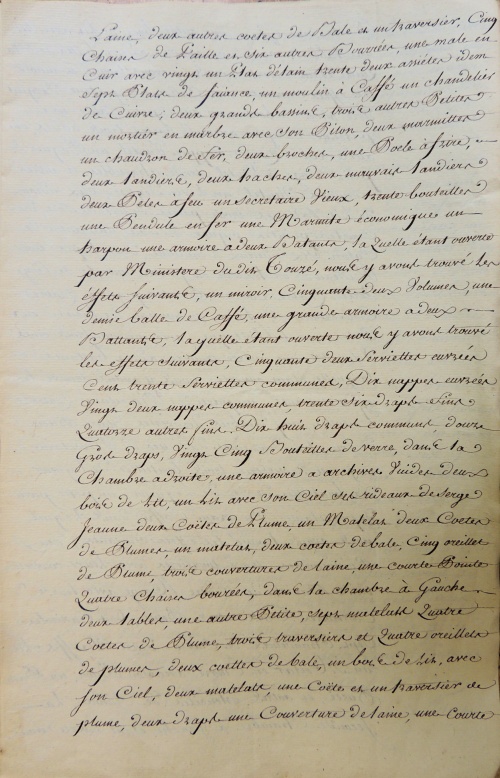 Laine, deux autres coetes de Bale et un traversier, Cinq
Chaises de Paille et six autres Bourrées, une male en
Cuir avec vingt un Plats détain trente deux assiétes idem
Sept Plats de faiance, un moulin à Caffé un chandelier
de Cuivre; deux grands bassins, trois autres Petites
un mortier en marbre avec son Piton, deux marmittes
un chaudron de fer, deux broches, une Poele à frire,
deux Landiers, deux haches, deux mauvais Landiers
deux Peles à feu un secretaire Vieux, trente bouteilles
une Pendule en fer une Marmite économiques un
harpon une armoire à deux Batants, laquelle étant ouverte
par Ministere dudit Touzé, nous y avons trouvé Les
éffets suivants, un miroir, Cinquante deux Volumes, une
demie balle de Caffé, une grande armoire a deux
Battants, laquelle étant ouverte nous y avons trouvé
les effets suivants, Cinquante deux Serviettes euvrées
Cent trente Serviettes communes, Dix nappes euvrées
Vingt deux nappes communes, trente six draps fins
Quatorze autres fins. Dix huit draps communs, douze
Gros draps, Vingt Cinq Bouteilles de verre, dans la
Chambre adroite, une armoire a archives Vuides deux
bois de Lit, un Lit avec son Ciel ses rideaux de Serge
Jeaune deux Coëtes de Plume, un Matelas deux Coetes
de Plumes, un matelas, deux coetes de bale, Cinq oreillers
de Plume, trois couvertures de laine, une courte Pointe
Quatre Chaises bourées, dans la chambre à Gauche
deux tables, une autre Petite, sept matelats Quatre
Coetes de Plume, trois traversiers et Quatre oreillers
de plumes, deux coettes de bale, un bois de Lit, avec
son Ciel, deux matelats, une Coëte et un traversier de
plume, deux draps une Couverture de laine, une Courte